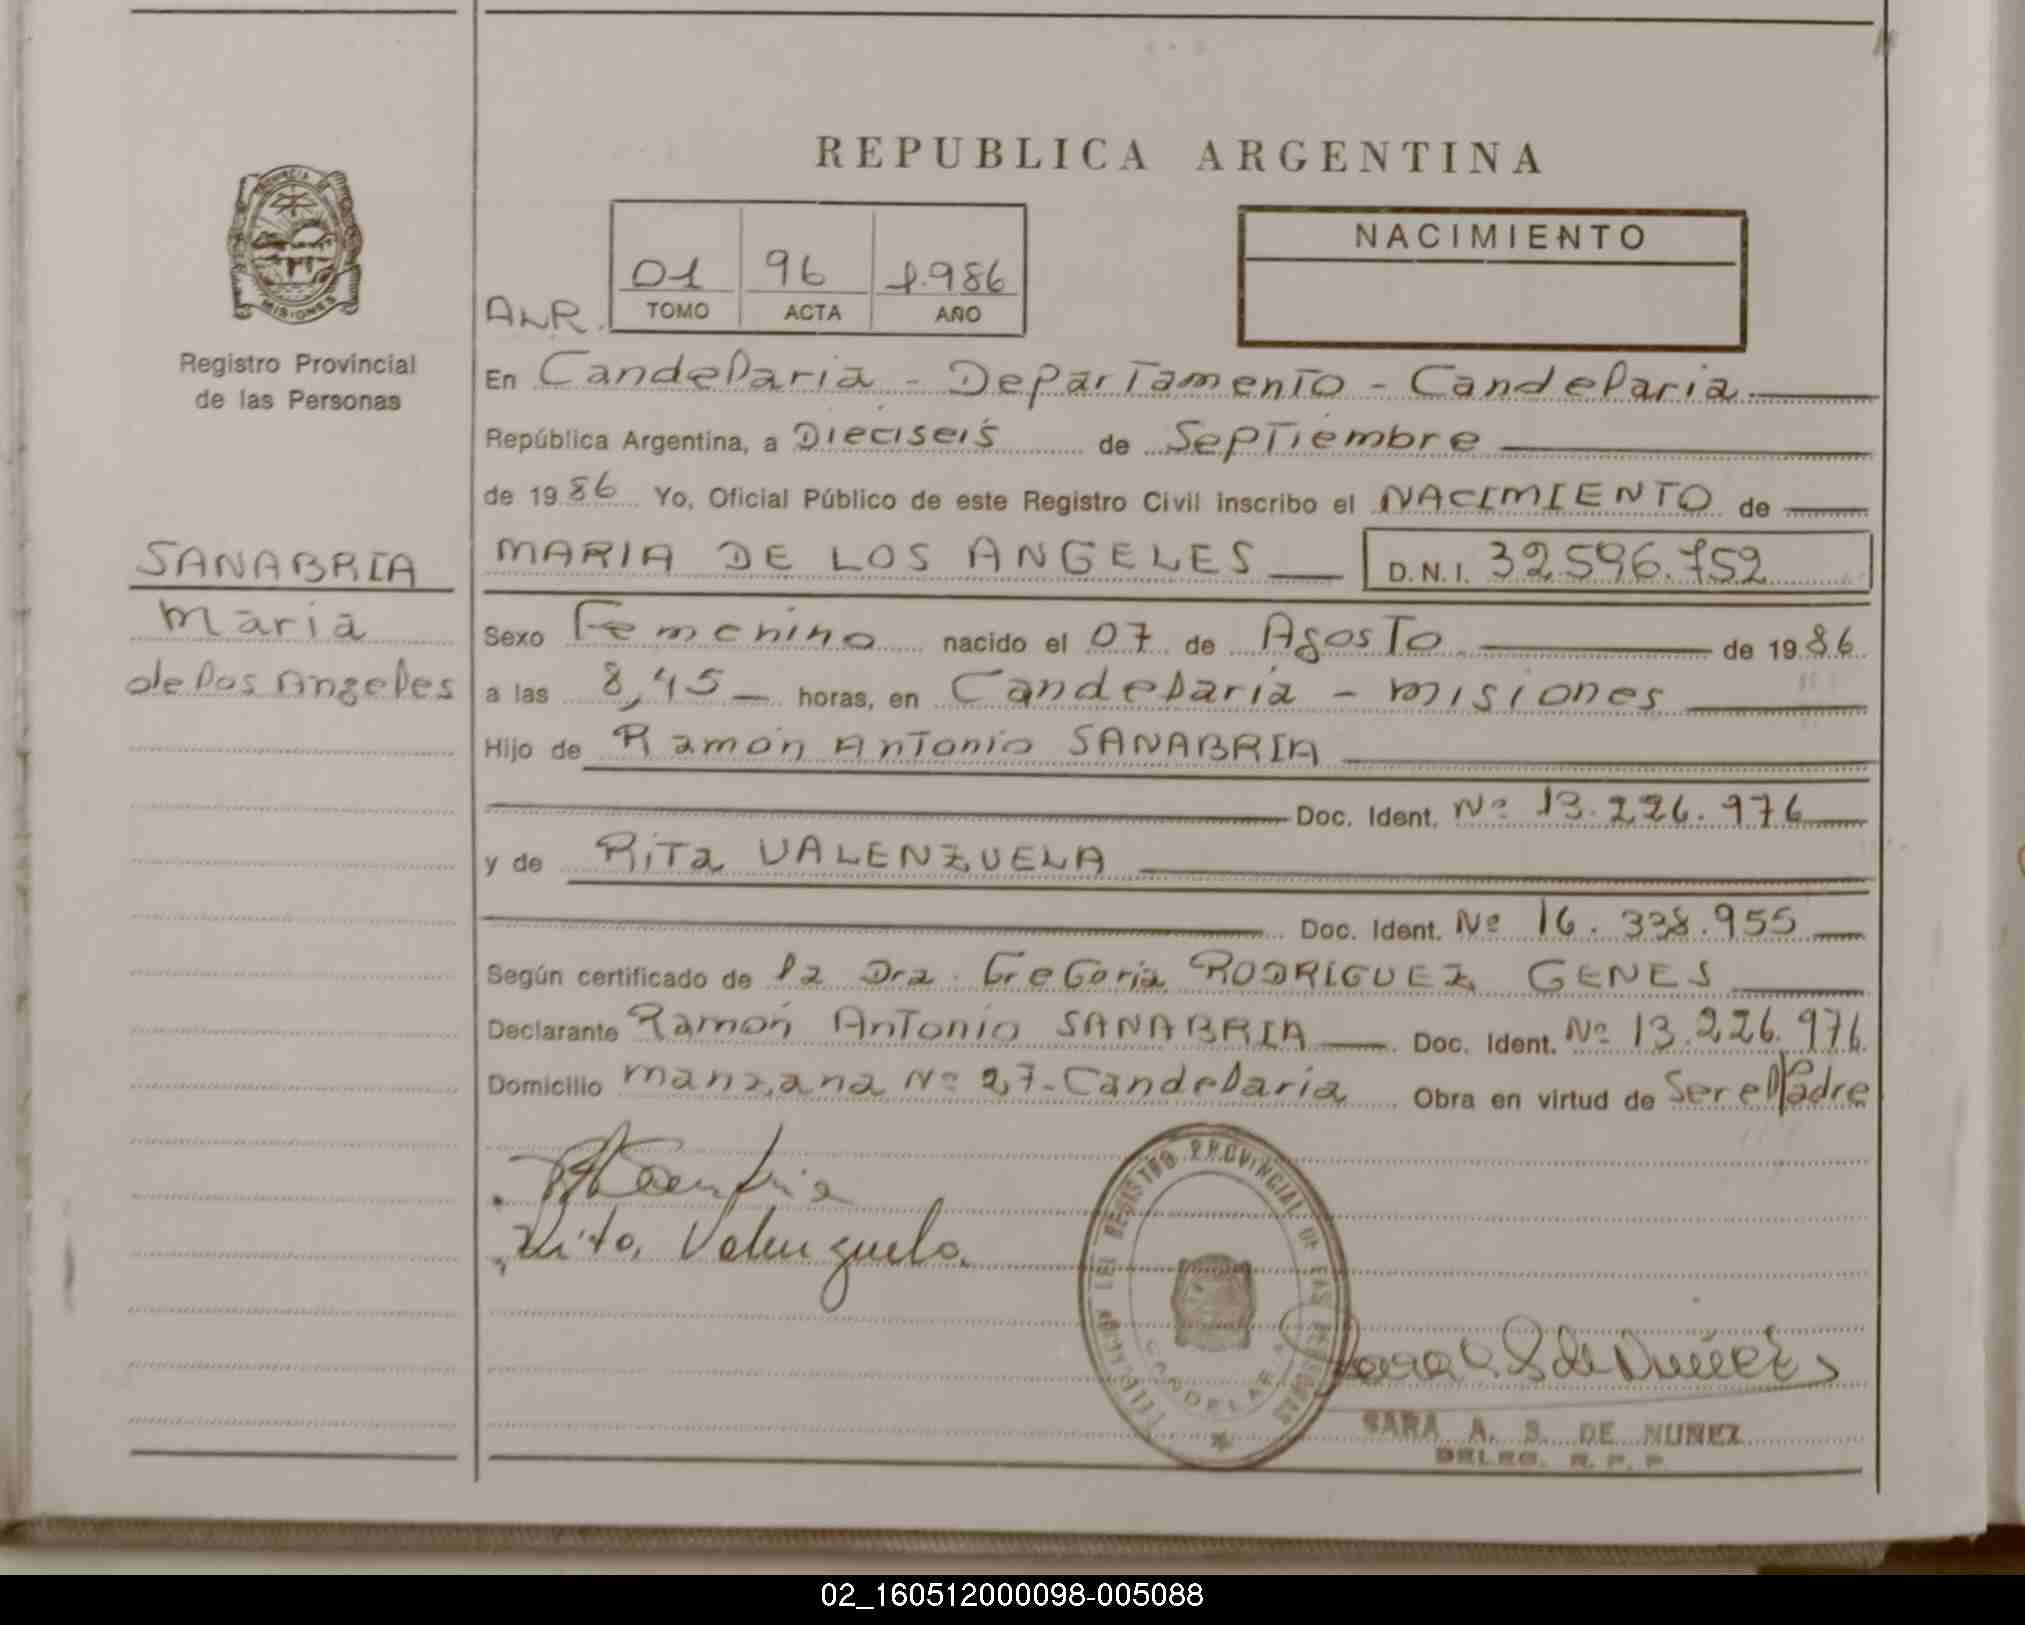 REPUBLICA ARGENTINA
PROVINCIA DE
MISIONES
Registro Provincial
de las Personas
01 96 1.986
TOMO ACTA AÑO
NACIMIENTO
ALR.
En Candelaria - Departamento - Candelaria
República Argentina, a Dieciseis de Septiembre
de 1986 Yo, Oficial Público de este Registro Civil inscribo el NACIMIENTO de
SANABRIA
Maria
de los Angeles
MARIA DE LOS ANGELES D.N.I. 32.596.752
Sexo Femenino nacido el 07 de Agosto de 1986
a las 8,45 horas, en Candelaria - Misiones
Hijo de Ramón Antonio SANABRIA
Doc. Ident. Nº 13.226.976
y de Rita VALENZUELA
Doc. Ident. Nº 16.338.955
Según certificado de la Dra. Gregoria RODRIGUEZ GENES
Declarante Ramón Antonio SANABRIA Doc. Ident. Nº 13.226.976
Domicilio manzana Nº 27- Candelaria Obra en virtud de Ser el Padre
Rita Valenzuela
REGISTRO PROVINCIAL DE LAS PERSONAS
CANDELARIA
SARA A. S. DE NUÑEZ
DELEG. R. P. P.
02_160512000098-005088